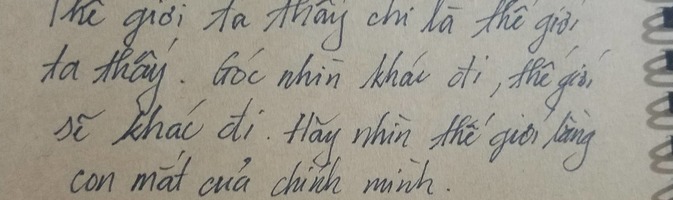 Thế giới ta thấy chỉ là thế giới
ta thấy. Góc nhìn khác đi, thế giới
sẽ khác đi. Hãy nhìn thế giới bằng
con mắt của chính mình.